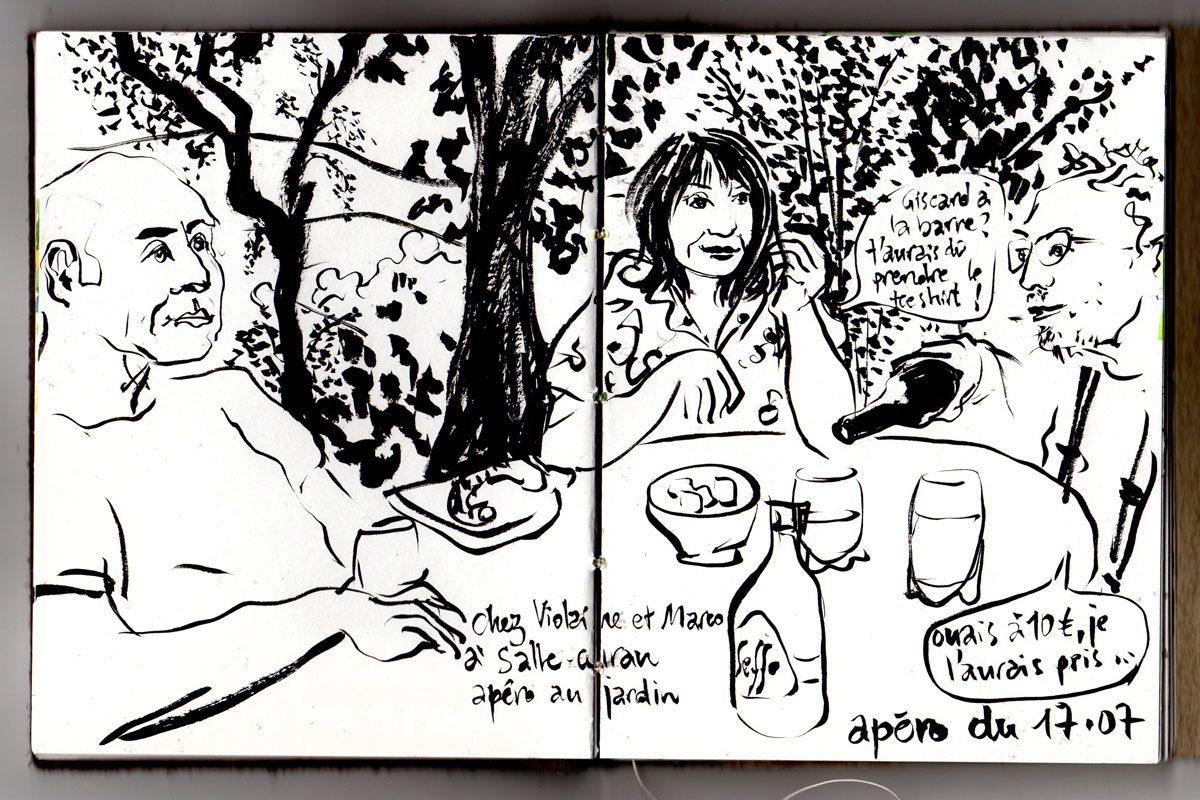 Giscard à
la barre?
t'aurais dû
prendre le
tee shirt !
chez Violaine et Marco
à Salle-auran
apéro au jardin
Leffe
ouais à 10€, je
l'aurais pris...
apéro du 17.07